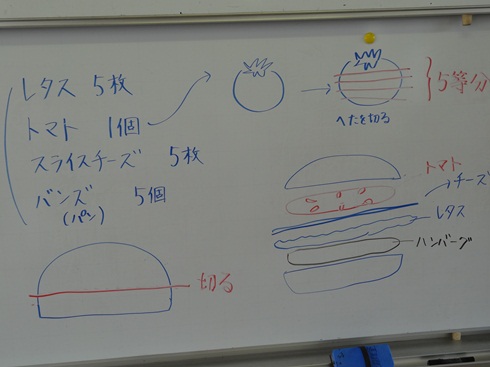 レタス 5枚
トマト 1個
スライスチーズ 5枚
バンズ 5個
(パン)
切る
へたを切る
5等分
トマト
チーズ
レタス
ハンバーグ